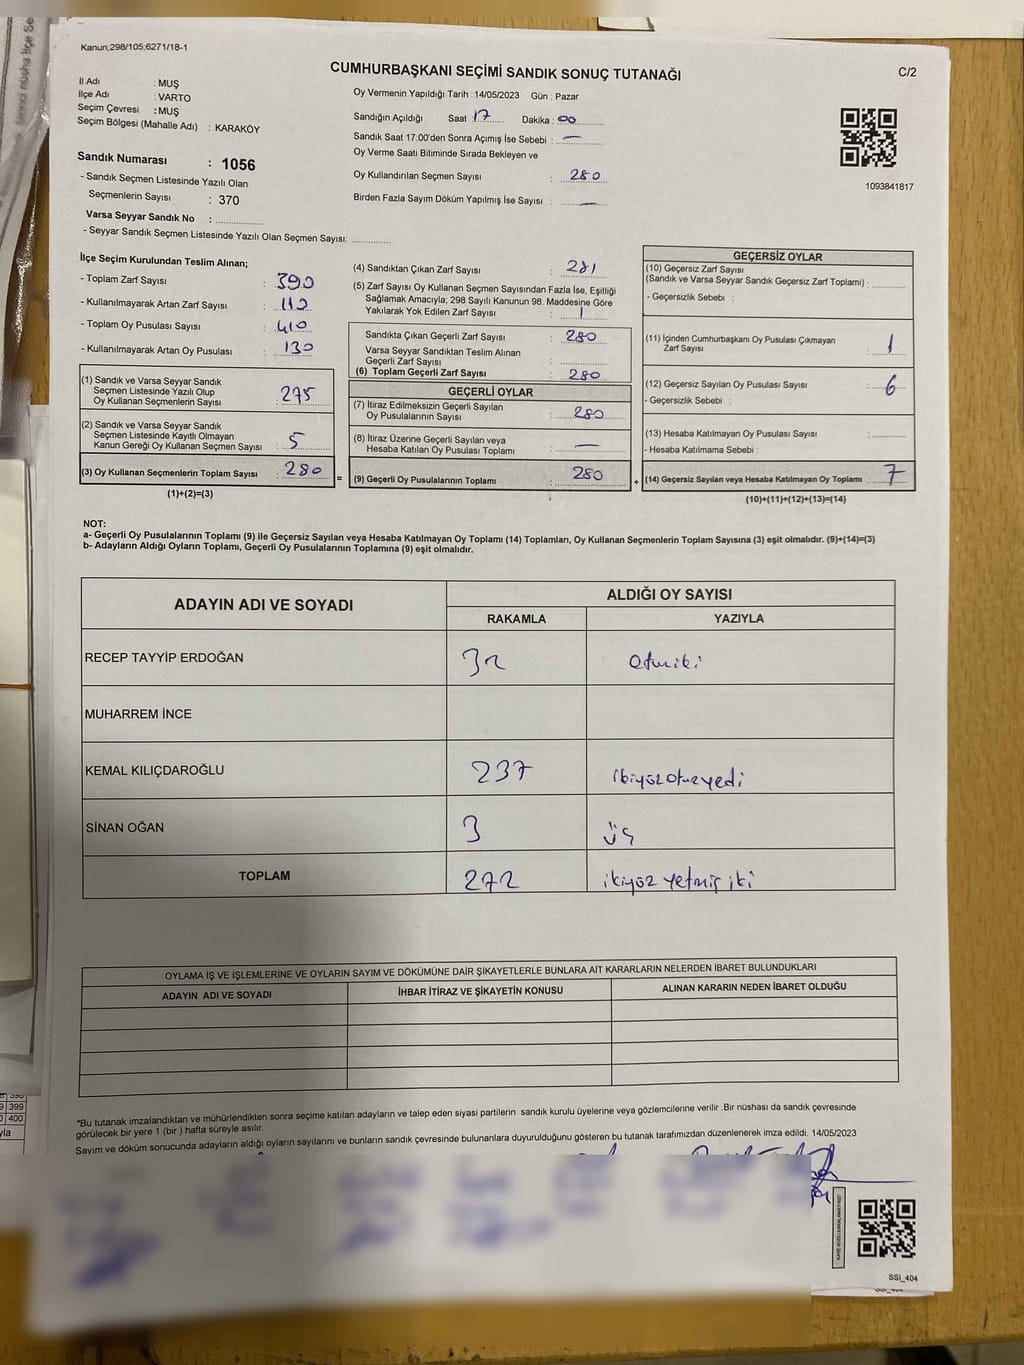 Kanun;298/105;6271/18-1
CUMHURBAŞKANI SEÇİMİ SANDIK SONUÇ TUTANAĞI
C/2
İl Adı : MUŞ
İlçe Adı : VARTO
Seçim Çevresi : MUŞ
Seçim Bölgesi (Mahalle Adı) : KARAKÖY
Sandık Numarası : 1056
- Sandık Seçmen Listesinde Yazılı Olan
Seçmenlerin Sayısı : 370
Varsa Seyyar Sandık No :
- Seyyar Sandık Seçmen Listesinde Yazılı Olan Seçmen Sayısı:
Oy Vermenin Yapıldığı Tarih : 14/05/2023 Gün : Pazar
Sandığın Açıldığı Saat 17 Dakika : 00
Sandık Saat 17:00'den Sonra Açımış İse Sebebi : —
Oy Verme Saati Bitiminde Sırada Bekleyen ve
Oy Kullandırılan Seçmen Sayısı : 280
Birden Fazla Sayım Döküm Yapılmış İse Sayısı : —
1093841817
İlçe Seçim Kurulundan Teslim Alınan;
- Toplam Zarf Sayısı : 390
- Kullanılmayarak Artan Zarf Sayısı : 110
- Toplam Oy Pusulası Sayısı : 410
- Kullanılmayarak Artan Oy Pusulası : 130
(1) Sandık ve Varsa Seyyar Sandık
Seçmen Listesinde Yazılı Olup
Oy Kullanan Seçmenlerin Sayısı : 275
(2) Sandık ve Varsa Seyyar Sandık
Seçmen Listesinde Kayıtlı Olmayan
Kanun Gereği Oy Kullanan Seçmen Sayısı : 5
(3) Oy Kullanan Seçmenlerin Toplam Sayısı : 280 =
(1)+(2)=(3)
(4) Sandıktan Çıkan Zarf Sayısı : 281
(5) Zarf Sayısı Oy Kullanan Seçmen Sayısından Fazla İse, Eşitliği
Sağlamak Amacıyla; 298 Sayılı Kanunun 98. Maddesine Göre
Yakılarak Yok Edilen Zarf Sayısı : 1
Sandıkta Çıkan Geçerli Zarf Sayısı : 280
Varsa Seyyar Sandıktan Teslim Alınan
Geçerli Zarf Sayısı :
(6) Toplam Geçerli Zarf Sayısı : 280
GEÇERLİ OYLAR
(7) İtiraz Edilmeksizin Geçerli Sayılan
Oy Pusulalarının Sayısı : 280
(8) İtiraz Üzerine Geçerli Sayılan veya
Hesaba Katılan Oy Pusulası Toplamı : —
(9) Geçerli Oy Pusulalarının Toplamı : 280 +
GEÇERSİZ OYLAR
(10) Geçersiz Zarf Sayısı
(Sandık ve Varsa Seyyar Sandık Geçersiz Zarf Toplamı) :
- Geçersizlik Sebebi :
(11) İçinden Cumhurbaşkanı Oy Pusulası Çıkmayan
Zarf Sayısı : 1
(12) Geçersiz Sayılan Oy Pusulası Sayısı : 6
- Geçersizlik Sebebi :
(13) Hesaba Katılmayan Oy Pusulası Sayısı :
- Hesaba Katılmama Sebebi :
(14) Geçersiz Sayılan veya Hesaba Katılmayan Oy Toplamı : 7
(10)+(11)+(12)+(13)=(14)
NOT:
a- Geçerli Oy Pusulalarının Toplamı (9) ile Geçersiz Sayılan veya Hesaba Katılmayan Oy Toplamı (14) Toplamları, Oy Kullanan Seçmenlerin Toplam Sayısına (3) eşit olmalıdır. (9)+(14)=(3)
b- Adayların Aldığı Oyların Toplamı, Geçerli Oy Pusulalarının Toplamına (9) eşit olmalıdır.
ADAYIN ADI VE SOYADI
ALDIĞI OY SAYISI
RAKAMLA YAZIYLA
RECEP TAYYİP ERDOĞAN 32 otuziki
MUHARREM İNCE
KEMAL KILIÇDAROĞLU 237 ikiyüzotuzyedi
SİNAN OĞAN 3 üç
TOPLAM 272 ikiyüz yetmiş iki
OYLAMA İŞ VE İŞLEMLERİNE VE OYLARIN SAYIM VE DÖKÜMÜNE DAİR ŞİKAYETLERLE BUNLARA AİT KARARLARIN NELERDEN İBARET BULUNDUKLARI
ADAYIN ADI VE SOYADI İHBAR İTİRAZ VE ŞİKAYETİN KONUSU ALINAN KARARIN NEDEN İBARET OLDUĞU
*Bu tutanak imzalandıktan ve mühürlendikten sonra seçime katılan adayların ve talep eden siyasi partilerin sandık kurulu üyelerine veya gözlemcilerine verilir .Bir nüshası da sandık çevresinde
görülecek bir yere 1 (bir ) hafta süreyle asılır.
Sayım ve döküm sonucunda adayların aldığı oyların sayılarını ve bunların sandık çevresinde bulunanlara duyurulduğunu gösteren bu tutanak tarafımızdan düzenlenerek imza edildi. 14/05/2023
SSİ_404
399
400